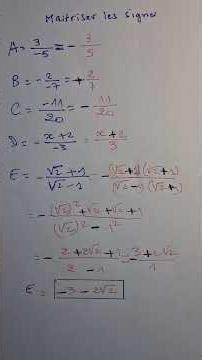 Maitriser les signes
A = 3/-5 = - 3/5
B = - 2/-7 = + 2/7
C = -11/20 = - 11/20
D = - x+2/-3 = x+2/3
E = - √2+1/√2-1 = - (√2+1)(√2+1)/(√2-1)(√2+1)
= - (√2)²+√2+√2+1/(√2)²-1²
= - 2+2√2+1/2-1 = - 3+2√2/1
E = -3-2√2